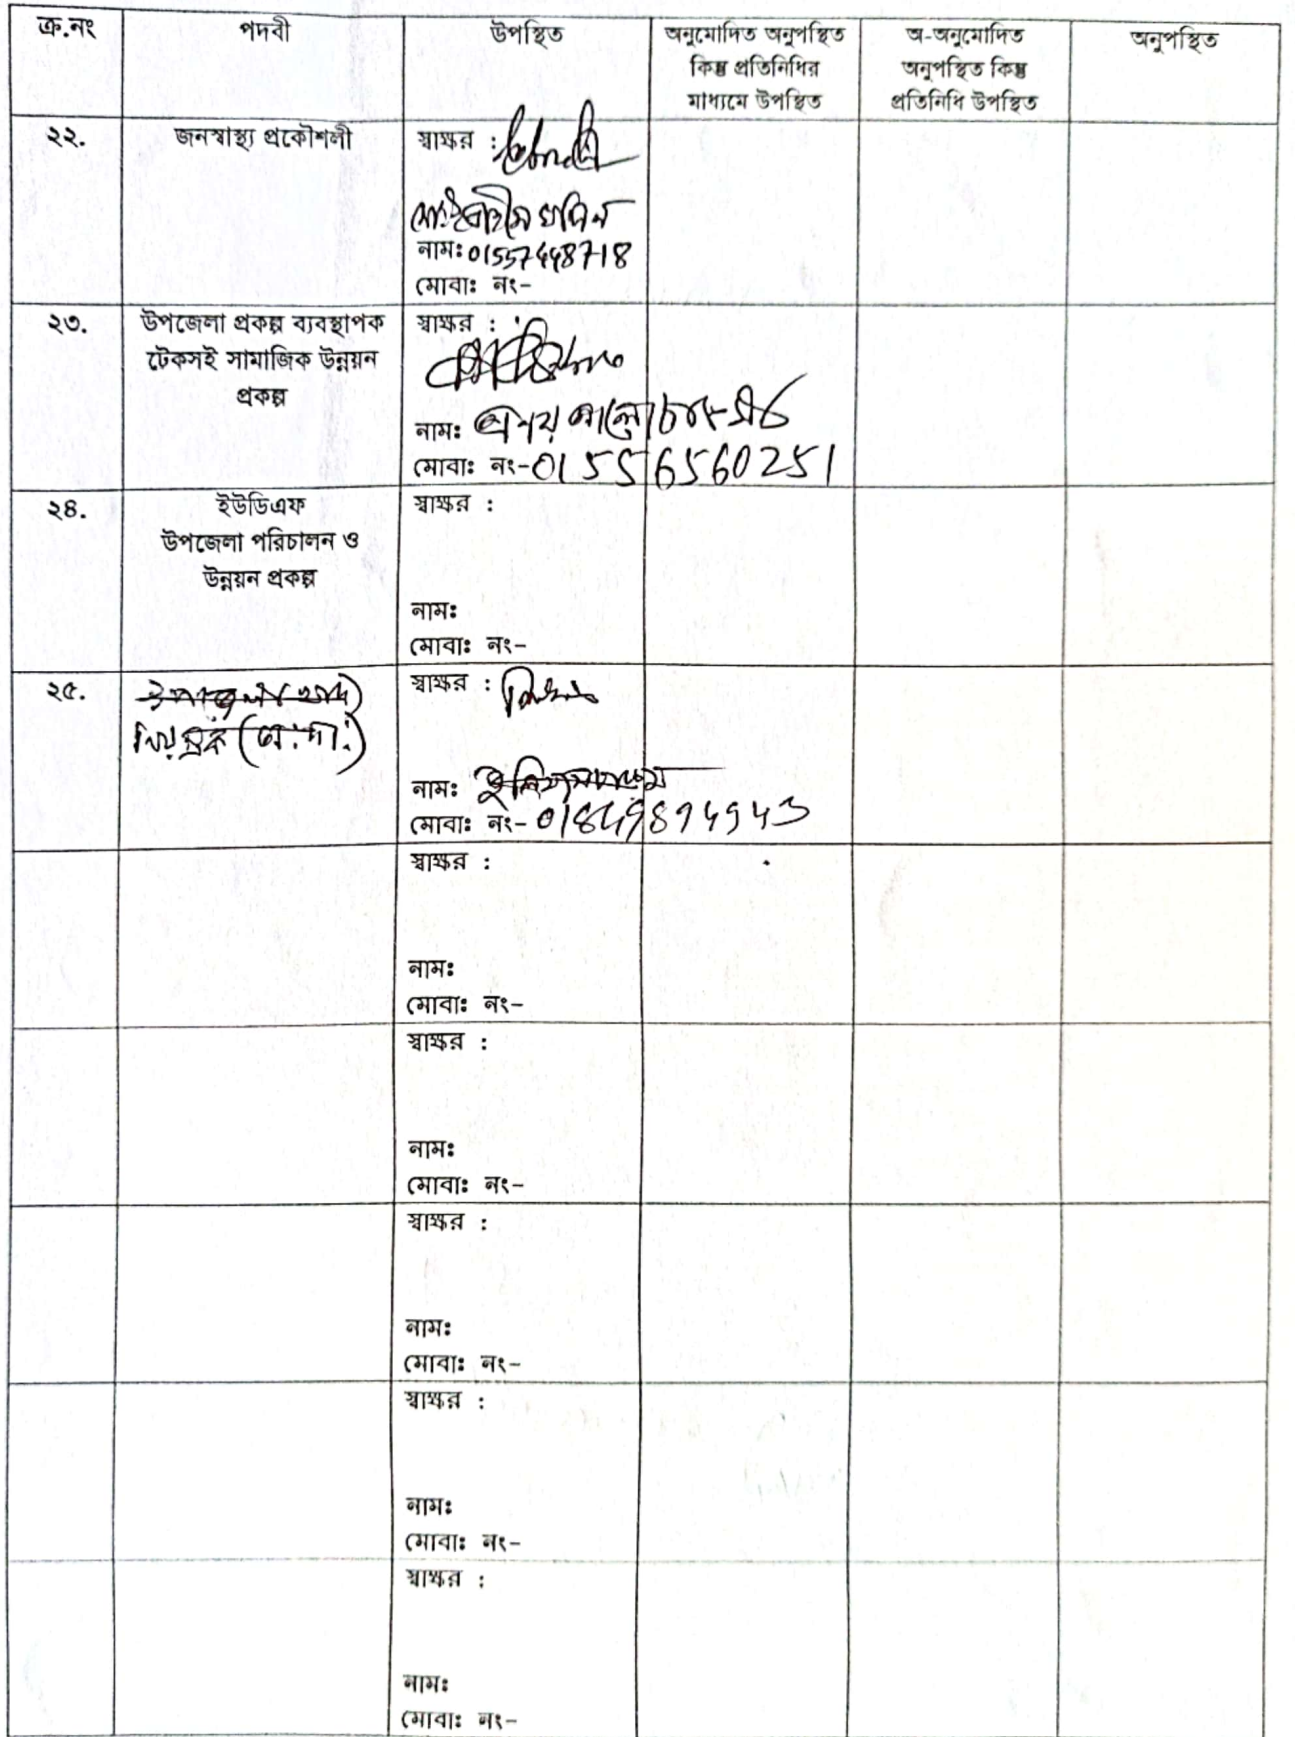 ক্র.নং পদবী উপস্থিত অনুমোদিত অনুপস্থিত কিন্তু প্রতিনিধির মাধ্যমে উপস্থিত অ-অনুমোদিত অনুপস্থিত কিন্তু প্রতিনিধি উপস্থিত অনুপস্থিত
২২. জনস্বাস্থ্য প্রকৌশলী স্বাক্ষর :
নাম: 01557448718
মোবা: নং-
২৩. উপজেলা প্রকল্প ব্যবস্থাপক স্বাক্ষর :
টেকসই সামাজিক উন্নয়ন
প্রকল্প
নাম:
মোবা: নং- 01556560251
২৪. ইউডিএফ স্বাক্ষর :
উপজেলা পরিচালন ও
উন্নয়ন প্রকল্প
নাম:
মোবা: নং-
২৫. স্বাক্ষর :
নাম:
মোবা: নং-
স্বাক্ষর :
নাম:
মোবা: নং-
স্বাক্ষর :
নাম:
মোবা: নং-
স্বাক্ষর :
নাম:
মোবা: নং-
স্বাক্ষর :
নাম:
মোবা: নং-
স্বাক্ষর :
নাম:
মোবা: নং-